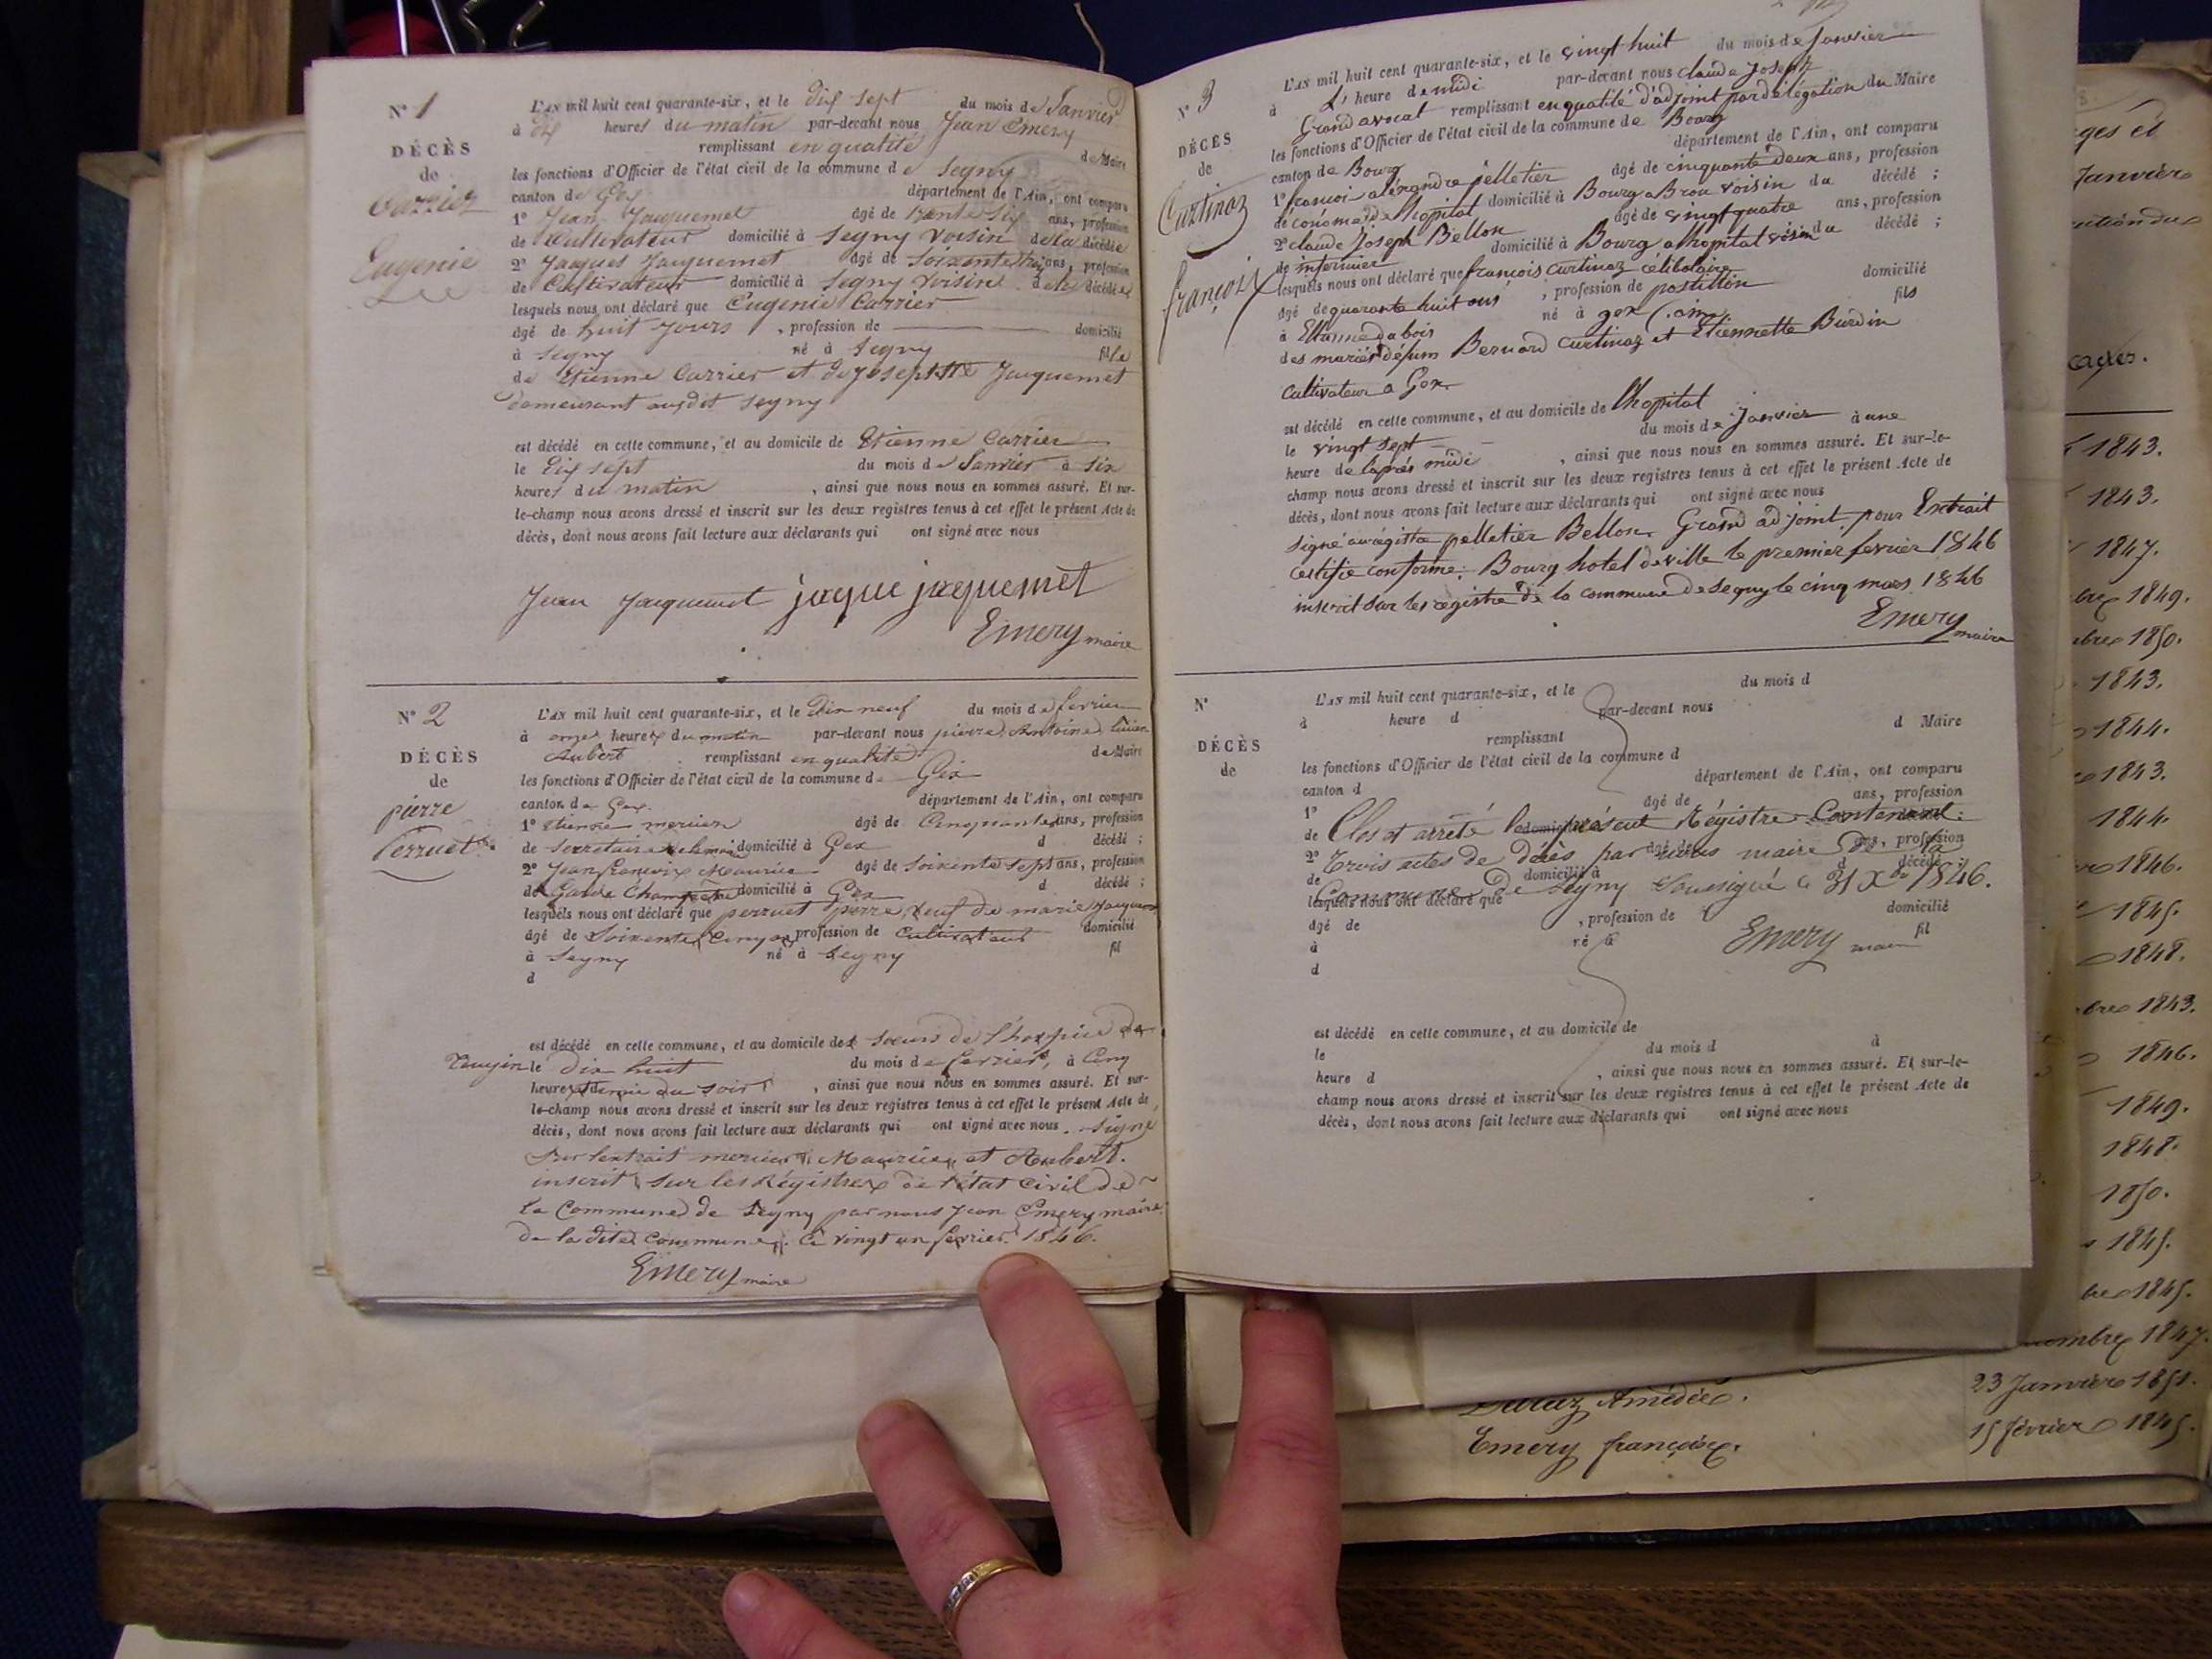 N° 1
DÉCÈS
de
Carrier
Eugenie
L'AN mil huit cent quarante-six, et le dix sept du mois de Janvier
à dix heures du matin par-devant nous Jean Emery
remplissant en qualité de Maire
les fonctions d'Officier de l'état civil de la commune de Segny
canton de Gex département de l'Ain, ont comparu
1° Jean Jacquemet âgé de trente six ans, profession
de Cultivateur domicilié à Segny voisin de la décédée
2° Jacques Jacquemet âgé de soixante trois ans, profession
de Cultivateur domicilié à Segny voisin de la décédée
lesquels nous ont déclaré que Eugenie Carrier
âgé de huit jours , profession de domicilié
à Segny né à Segny fille
de Etienne Carrier et de Josephte Jacquemet
demeurant audit Segny
est décédé en cette commune, et au domicile de Etienne Carrier
le dix sept du mois de Janvier à six
heures du matin , ainsi que nous nous en sommes assuré. Et sur-
le-champ nous avons dressé et inscrit sur les deux registres tenus à cet effet le présent Acte de
décès, dont nous avons fait lecture aux déclarants qui ont signé avec nous
Jean Jacquemet jaque jaquemet
Emery maire
N° 2
DÉCÈS
de
pierre
Perruet
L'AN mil huit cent quarante-six, et le dix neuf du mois de fevrier
à onze heures du matin par-devant nous pierre Antoine
Aubert remplissant en qualité de Maire
les fonctions d'Officier de l'état civil de la commune de Gex
canton de Gex. département de l'Ain, ont comparu
1° Etienne mercier âgé de Cinquante ans, profession
de Secretaire de la mairie domicilié à Gex d décédé ;
2° Jean françois Maurice âgé de soixente sept ans, profession
de Garde Champêtre domicilié à Gex d décédé ;
lesquels nous ont déclaré que perruet pierre veuf de marie
âgé de Soixente Cinq ans profession de Cultivateur domicilié
à Segny né à Segny fil
d
est décédé en cette commune, et au domicile des soeurs de l'hospice de
le dix huit du mois de fevrier, à Cinq
heures et demie du soir , ainsi que nous nous en sommes assuré. Et sur-
le-champ nous avons dressé et inscrit sur les deux registres tenus à cet effet le présent Acte de
décès, dont nous avons fait lecture aux déclarants qui ont signé avec nous. signé
sur lextrait mercier, Maurice, et Aubert.
inscrit sur les Régistres de l'état Civil de
la Commune de Segny par nous Jean Emery maire
de la dite Commune. Ce vingt un fevrier 1846.
Emery maire
N° 3
DÉCÈS
de
Curtinaz
françois
L'AN mil huit cent quarante-six, et le vingt huit du mois de Janvier
à L' heure de midi par-devant nous claude Joseph
Grand avocat remplissant en qualité d'adjoint par délégation du Maire
les fonctions d'Officier de l'état civil de la commune de Bourg
canton de Bourg département de l'Ain, ont comparu
1° francois alexandre pelletier âgé de cinquante deux ans, profession
d'économe de lhopital domicilié à Bourg a Brou voisin du décédé ;
2° claude Joseph Bellon âgé de vingt quatre ans, profession
de infirmier domicilié à Bourg a lhopital voisin du décédé ;
lesquels nous ont déclaré que francois curtinaz célibataire
âgé de quarante huit ans , profession de postillon domicilié
à né à gex (ain) fils
des mariés défunt Bernard curtinaz et Etiennette Burdin
cultivateur a Gex.
est décédé en cette commune, et au domicile de lhopital
le vingt sept du mois de Janvier à une
heure de laprés midi , ainsi que nous nous en sommes assuré. Et sur-le-
champ nous avons dressé et inscrit sur les deux registres tenus à cet effet le présent Acte de
décès, dont nous avons fait lecture aux déclarants qui ont signé avec nous
signé au régistre pelletier Bellon, Grand adjoint, pour Extrait
certifié conforme: Bourg hotel de ville le premier fevrier 1846
inscrit sur les registre de la commune de Segny le cinq mars 1846
Emery maire
N°
DÉCÈS
de
L'AN mil huit cent quarante-six, et le du mois d
à heure d par-devant nous
remplissant d Maire
les fonctions d'Officier de l'état civil de la commune d
canton d département de l'Ain, ont comparu
1° âgé de ans, profession
de Clos et arrété le présent Régistre Contenant
2° Trois actes de décès par nous maire de la
de domicilié à d décédé ;
Commune de Segny Soussigné le 31 Xbre 1846.
lesquels nous ont déclaré que
âgé de , profession de domicilié
à né à fil
Emery maire
d
est décédé en cette commune, et au domicile de
le du mois d à
heure d , ainsi que nous nous en sommes assuré. Et sur-le-
champ nous avons dressé et inscrit sur les deux registres tenus à cet effet le présent Acte de
décès, dont nous avons fait lecture aux déclarants qui ont signé avec nous
Janvier
1843.
1843.
1847.
1849.
1850.
1843.
1844.
1843.
1844.
1846.
1845.
1848.
1843.
1846.
1849.
1848.
1850.
1845.
1845.
1847.
Amédée. 23 Janvier 1851.
Emery françoise. 15 février 1845.